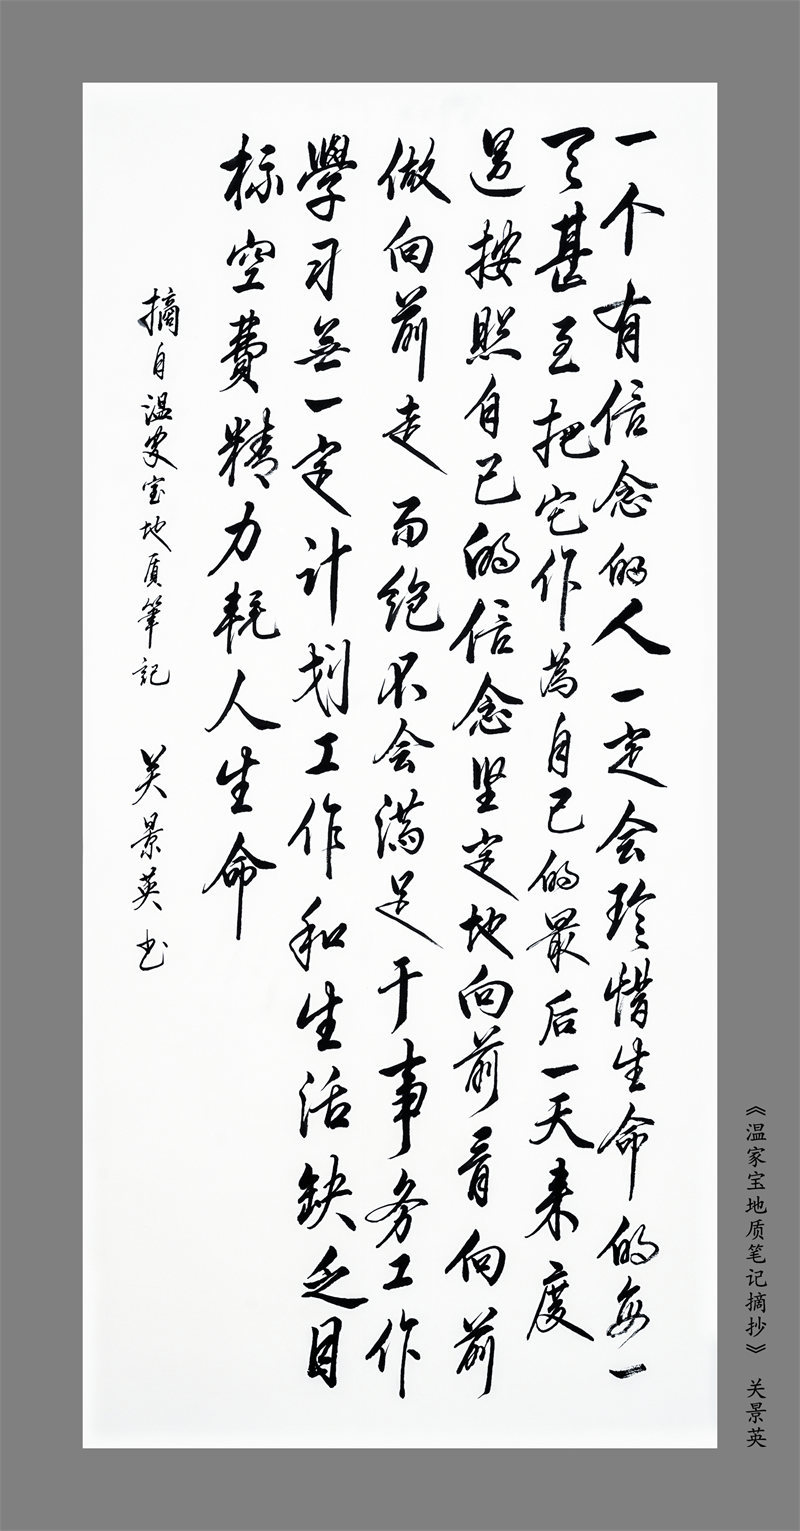 一个有信念的人一定会珍惜生命的每一
天甚至把它作為自己的最后一天来度
過按照自己的信念坚定地向前看向前
做向前走而绝不会满足于事务工作
學习無一定计划工作和生活缺乏目
标空費精力耗人生命
摘自温家宝地质筆記 关景英书
《温家宝地质笔记摘抄》 关景英